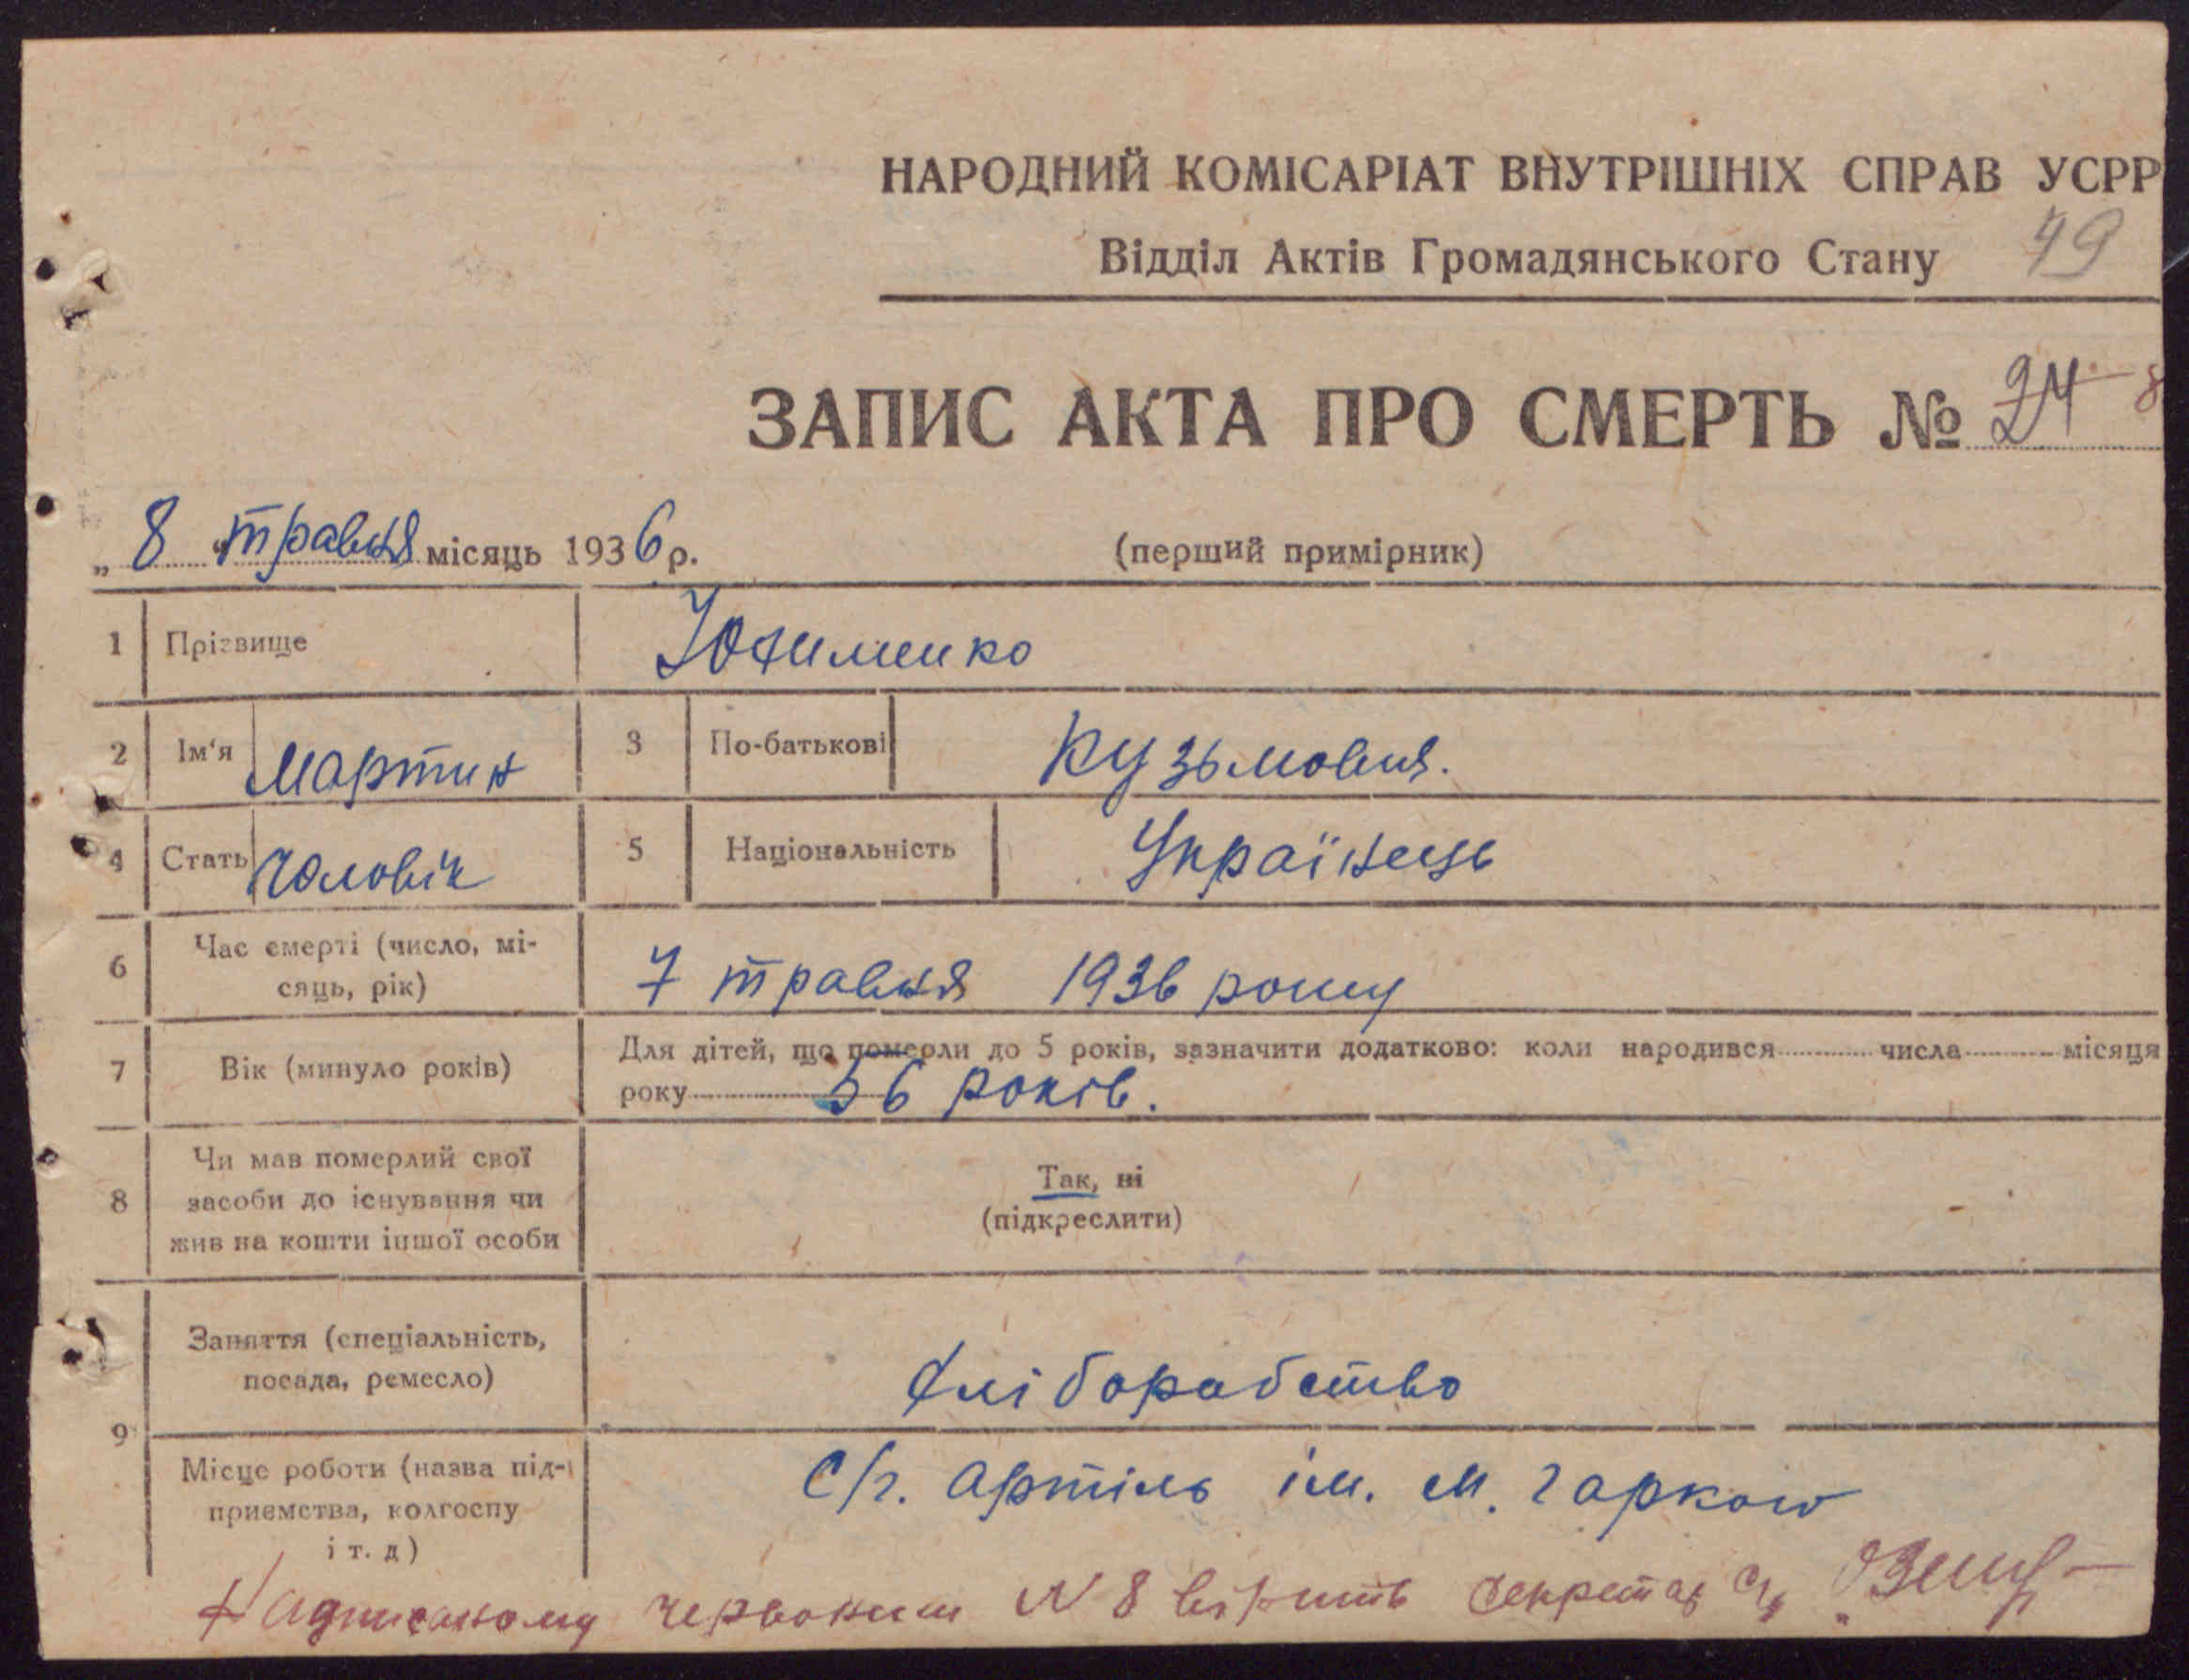 НАРОДНИЙ КОМІСАРІАТ ВНУТРІШНІХ СПРАВ УСРР
Відділ Актів Громадянського Стану 49
ЗАПИС АКТА ПРО СМЕРТЬ № 24 8
„ 8 " травня місяць 1936 р.
(перший примірник)
1 Прізвище Юхименко
2 Ім'я Мартин 3 По-батькові Кузьмовия.
4 Стать Чоловік 5 Національність Українець
6 Час смерті (число, мі-
сяць, рік) 7 травня 1936 року
7 Вік (минуло років) Для дітей, що померли до 5 років, зазначити додатково: коли народився числа місяця
року 56 років.
8 Чи мав померлий свої
засоби до існування чи
жив на кошти іншої особи
Так, ні
(підкреслити)
9 Заняття (спеціальність,
посада, ремесло) Хлібопабство
Місце роботи (назва під-
приємства, колгоспу
і т. д) С/г. артіль ім. М.
Надписаному червоним N 8 вірить секретар с/р